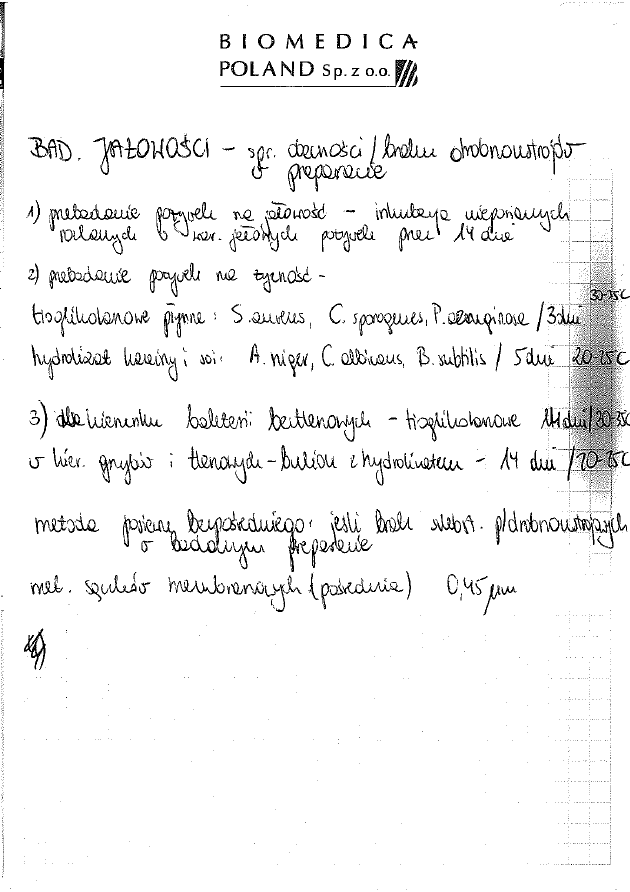 BIOMEDICA
POLAND Sp. z o.o.
BAD. JAŁOWOŚCI - spr. obecności / braku drobnoustrojów
w preparacie
1) przebadanie pożywek na jałowość - inkubacja nieposianych
i war. jałowych pożywek przez 14 dni
2) przebadanie pożywek na żyzność -
30-35C
tioglikolanowe płynne: S. aureus, C. sporogenes, P. aeruginosa / 3 dni
hydrolizat kazeiny i soi: A. niger, C. albicans, B. subtilis / 5 dni 20-25C
3) dla kierunku bakterii beztlenowych - tioglikolanowe 14 dni / 30-35C
w kier. grzybów i tlenowych - bulion z hydrolizatem - 14 dni / 20-25C
metoda posiewu bezpośredniego: jeśli brak subst. p/drobnoustrojowych
w badanym preparacie
met. sączków membranowych (pośrednia) 0,45 µm